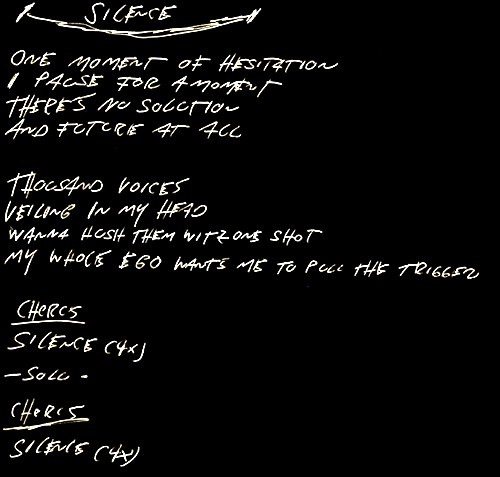 SILENCE
ONE MOMENT OF HESITATION
I PAUSE FOR A MOMENT
THERES NO SOLUTION
AND FUTURE AT ALL
THOUSAND VOICES
YELLING IN MY HEAD
WANNA HUSH THEM WITZ ONE SHOT
MY WHOLE EGO WANTS ME TO PULL THE TRIGGER
CHORUS
SILENCE (4x)
- SOLO -
CHORUS
SILENCE (4x)